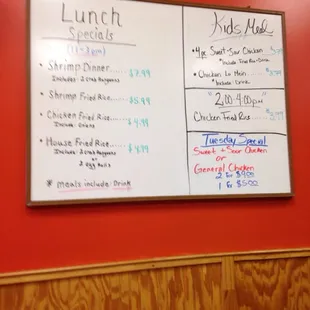 Lunch
Specials
(11-3pm)
Shrimp Dinner.....$7.99
Include: 2 Crab Rangoons
Shrimp Fried Rice.....$5.99
Chicken Fried Rice...$4.99
Include: Onions
House Fried Rice....
Include: 2 Crab Rangoons
or
2 Egg Rolls
* meals include Drink
Kids Meal
4pc Sweet + Sour Chicken
Include: Drink
Chicken Lo Mein
Include: Drink
"2:00-4:00pm"
Chicken Fried Rice
Tuesday Special
Sweet + Sour Chicken
or
General Chicken
2 for $9.00
1 for $5.00